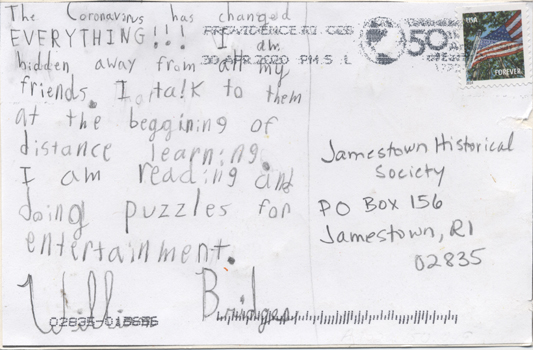 The Coronavirus has changed
EVERYTHING!!! I am
hidden away from all my
friends. I talk to them
at the beggining of
distance learning.
I am reading and
doing puzzles for
entertainment.
William Bridges
PROVIDENCE RI 028
30 APR 2020 PM 5 L
50
USA
FOREVER
Jamestown Historical
Society
PO Box 156
Jamestown, RI
02835